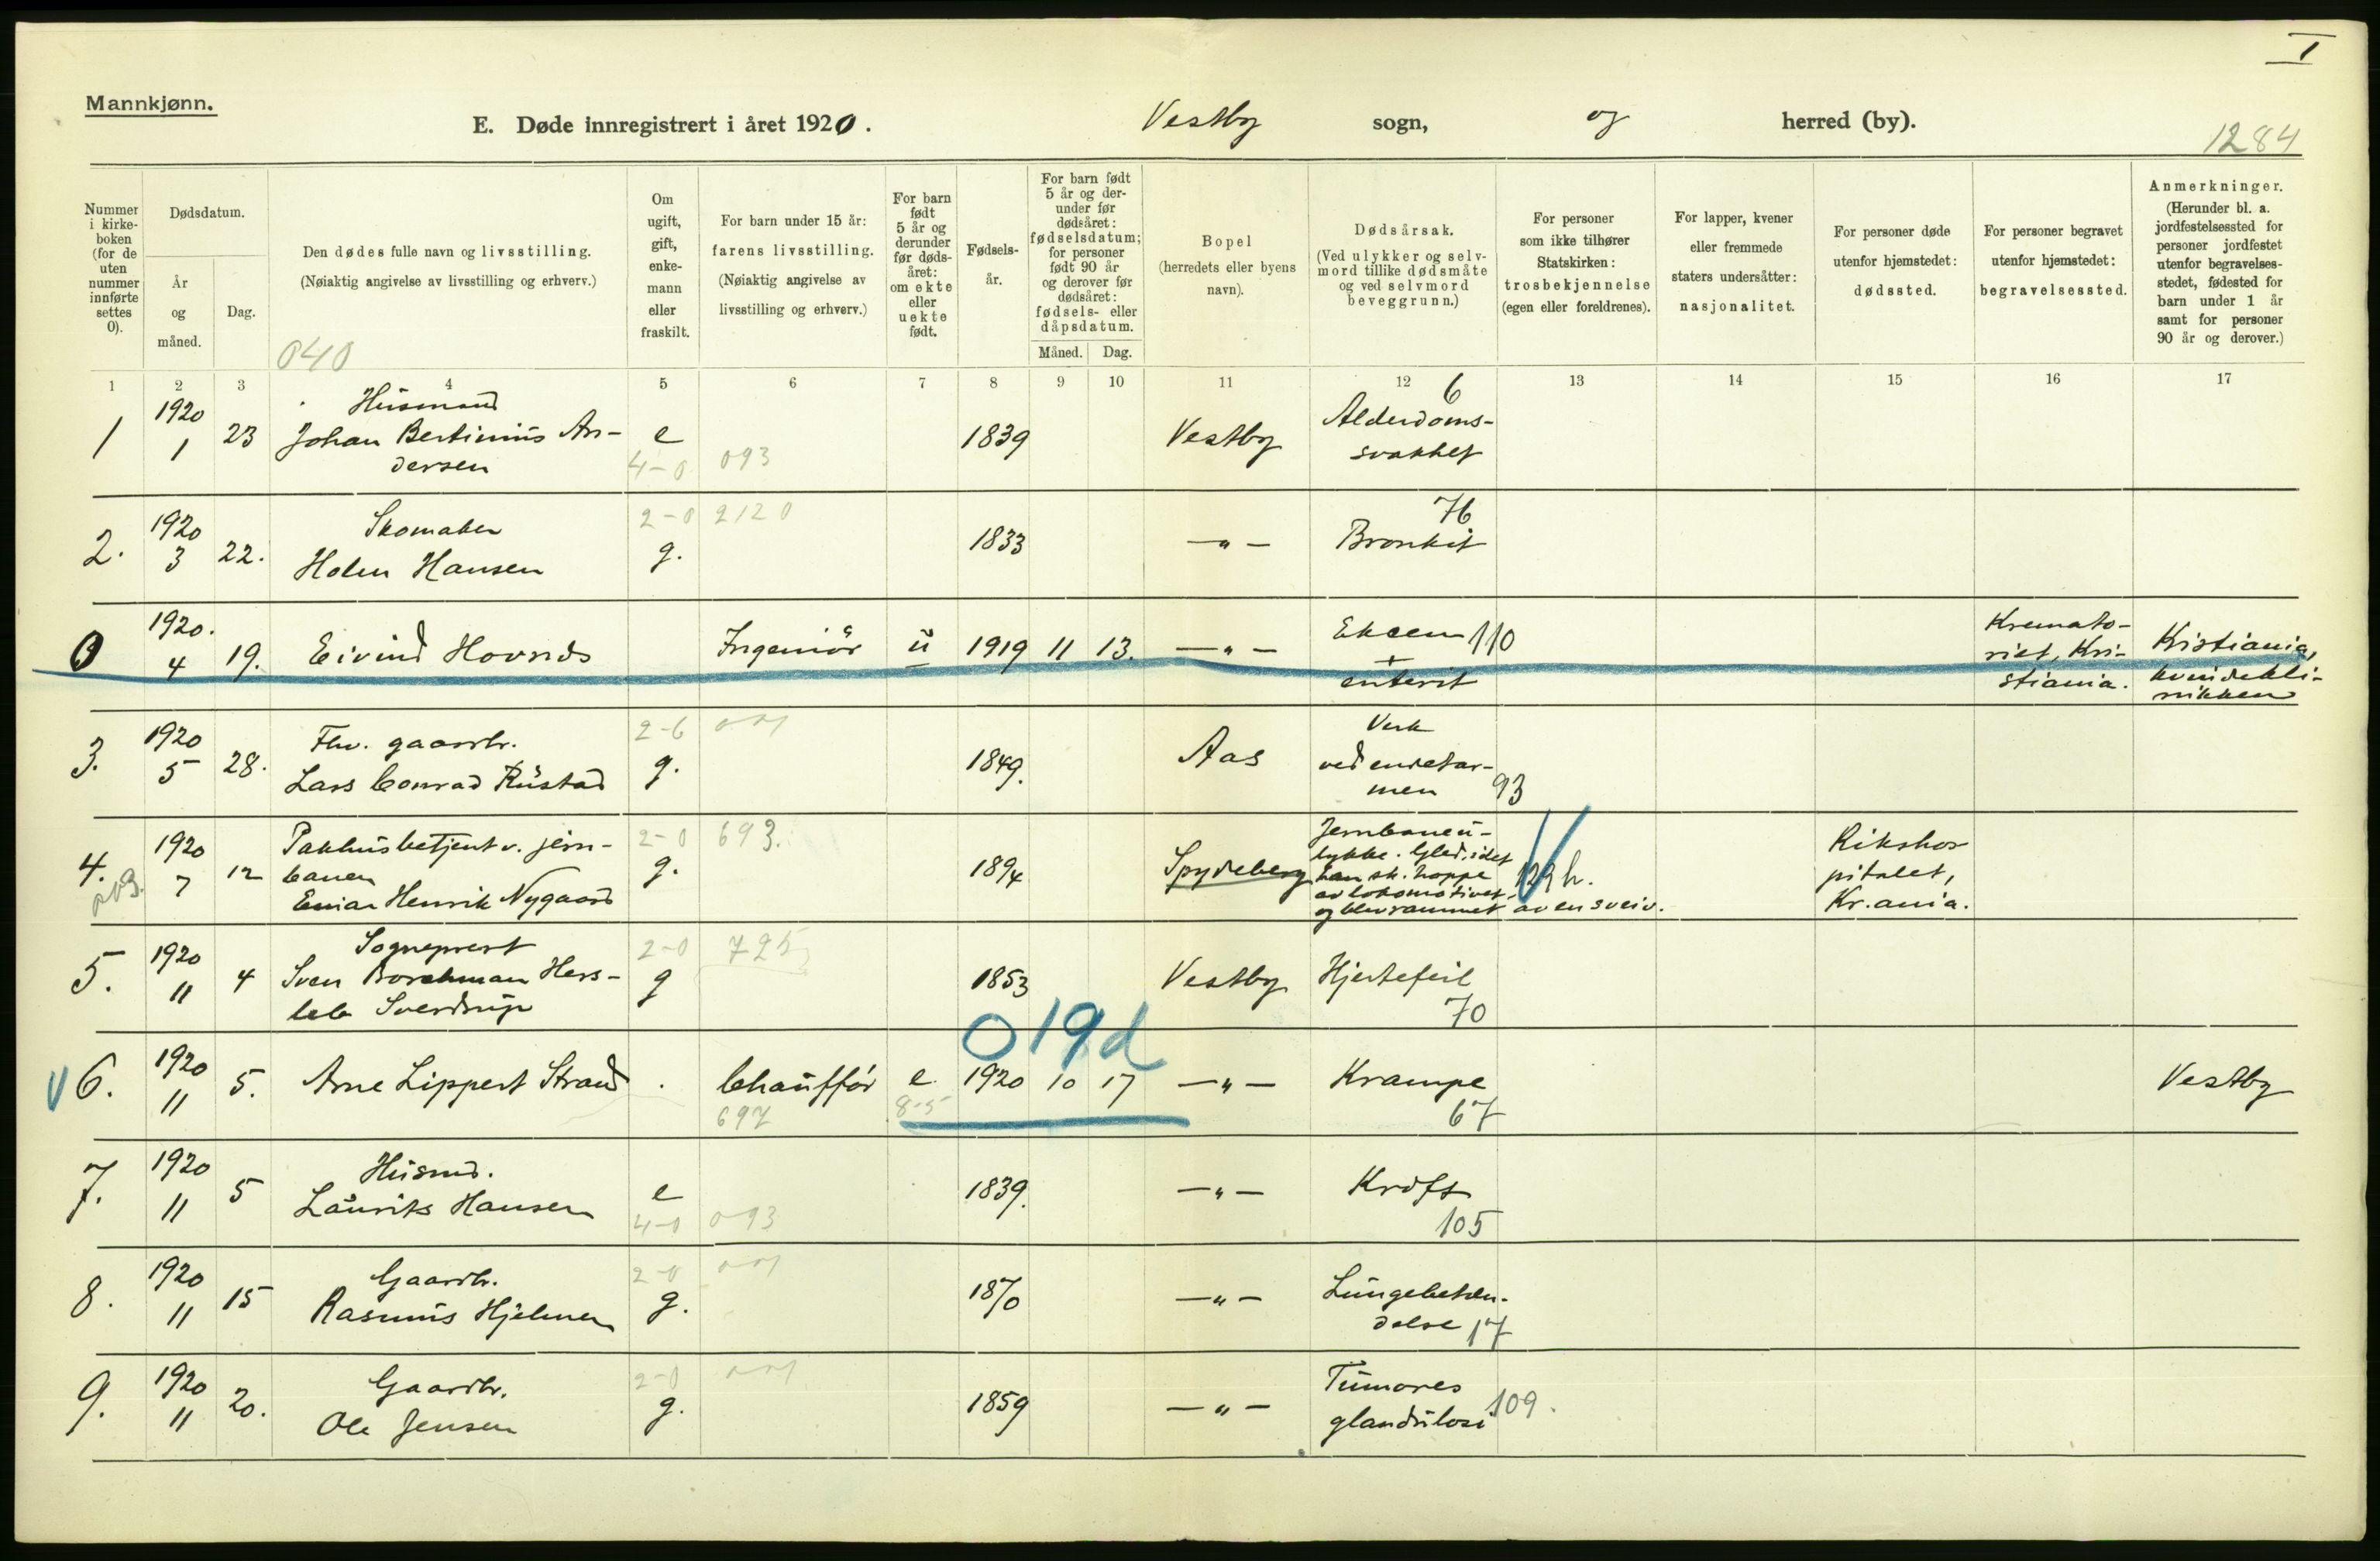 I
Mannkjønn.
E. Døde innregistrert i året 1920. Vestby sogn, og herred (by).
1284
Nummer i kirke-boken (for de uten nummer innførte settes 0).
Dødsdatum.
År og måned.
Dag.
Den dødes fulle navn og livsstilling.
(Nøiaktig angivelse av livsstilling og erhverv.)
040
Om ugift, gift, enke-mann eller fraskilt.
For barn under 15 år: farens livsstilling. (Nøiaktig angivelse av livsstilling og erhverv.)
For barn født 5 år og derunder før døds-året: om ekte eller uekte født.
Fødsels-år.
For barn født 5 år og der-under før dødsåret: fødselsdatum; for personer født 90 år og derover før dødsåret: fødsels- eller dåpsdatum.
Måned. Dag.
Bopel (herredets eller byens navn).
Dødsårsak. (Ved ulykker og selv-mord tillike dødsmåte og ved selvmord beveggrunn.)
For personer som ikke tilhører Statskirken: trosbekjennelse (egen eller foreldrenes).
For lapper, kvener eller fremmede staters undersåtter: nasjonalitet.
For personer døde utenfor hjemstedet: dødssted.
For personer begravet utenfor hjemstedet: begravelsessted.
Anmerkninger. (Herunder bl. a. jordfestelsessted for personer jordfestet utenfor begravelses-stedet, fødested for barn under 1 år samt for personer 90 år og derover.)
1 2 3 4 5 6 7 8 9 10 11 12 13 14 15 16 17
1 1920 1 23 Husmand Johan Bertinius An-
dersen e 4-0 093 1839 Vestby Alderdoms-
svakhet 6
2. 1920 3 22. Skomaker
Holm Hansen 2-0 g. 2120 1833 —"— Bronkit 76
0 1920. 4 19. Eivind Hovnds Ingeniör u 1919 11 13. —"— Ekcem 110
+
enterit
Kremato-
riet, Kri-
stiania.
Kristiania,
kvindekli-
nikken
3. 1920 5 28. Fhv. gaardbr.
Lars Conrad Rustad 2-6 g. 001 1849. Aas Verk
ved endetar-
men 93
4. 1920 7 12 Pakhusbetjent v. jern-
banen
Einar Henrik Nygaard 2-0 g. 693. 1894 Spydeberg Jernbaneu-
lykke. Gled, idet
han sk. hoppe
av lokomotivet,
og blev rammet av en sveiv.
Rikshos
pitalet,
Kr.ania.
5. 1920 11 4 Sogneprest
Sven Borchman Hers-
leb Sverdrup 2-0 g 725 1853 Vestby Hjertefeil
70
019d
V 6. 1920 11 5. Arne Lippert Strand . Chaufför 697 e. 8-5 1920 10 17 —"— Krampe
67
Vestby
7. 1920 11 5 Husmd.
Laurits Hansen e 4-0 093 1839. —"— Kræft
105
8. 1920 11 15 Gaardbr.
Rasmus Hjelmen 2-0 g. 001 1870 —"— Lungebetæn-
delse 17
9. 1920 11 20. Gaardbr.
Ole Jensen 2-0 g. 001 1859 —"— Tumores
glandulosi 109.